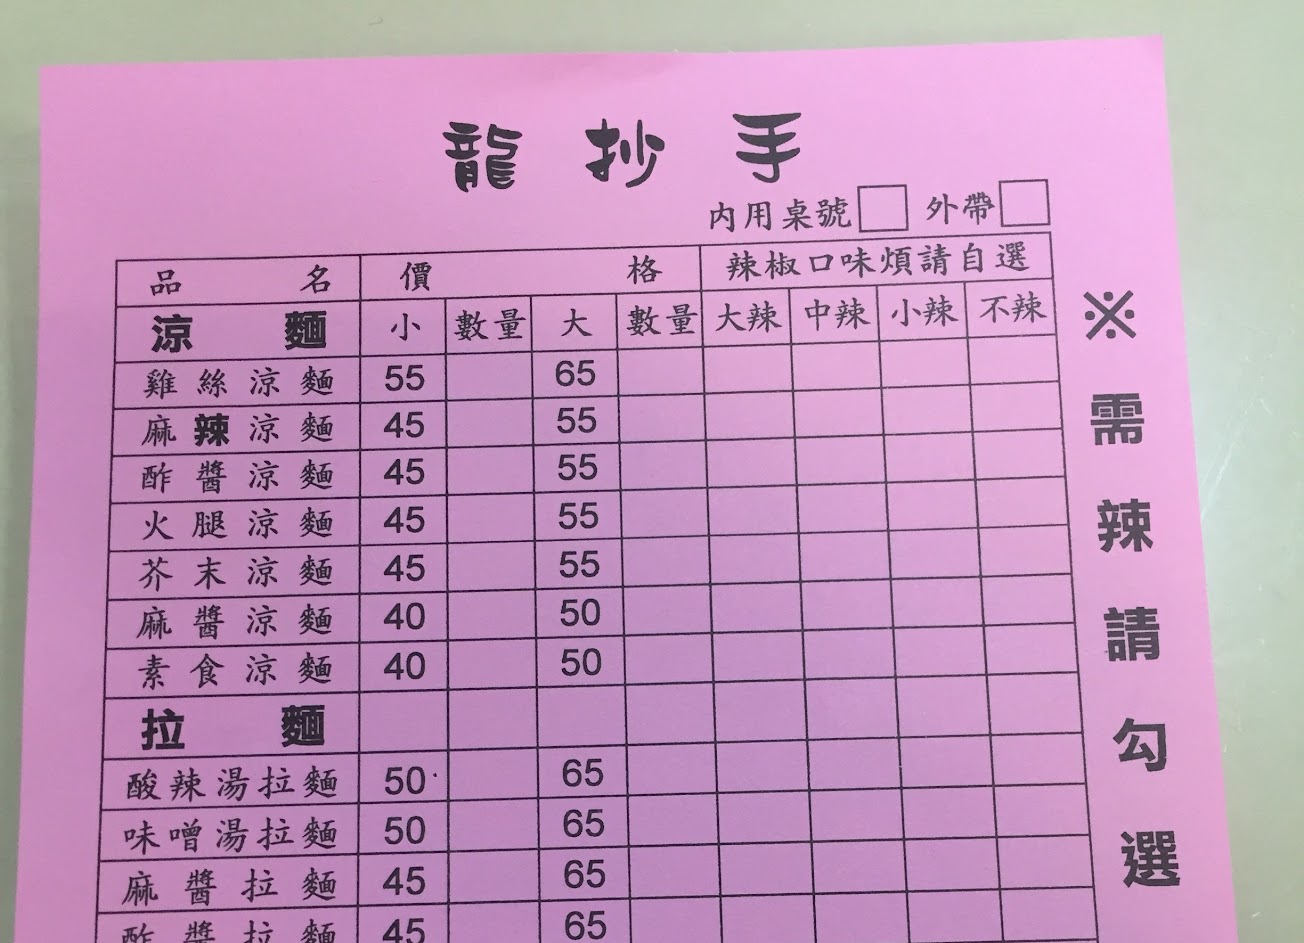 龍抄手
內用桌號 外帶
品名 價格 辣椒口味煩請自選
涼麵 小 數量 大 數量 大辣 中辣 小辣 不辣
雞絲涼麵 55 65
麻辣涼麵 45 55
酢醬涼麵 45 55
火腿涼麵 45 55
芥末涼麵 45 55
麻醬涼麵 40 50
素食涼麵 40 50
拉麵
酸辣湯拉麵 50 65
味噌湯拉麵 50 65
麻醬拉麵 45 65
酢醬拉麵 45 65
※需辣請勾選